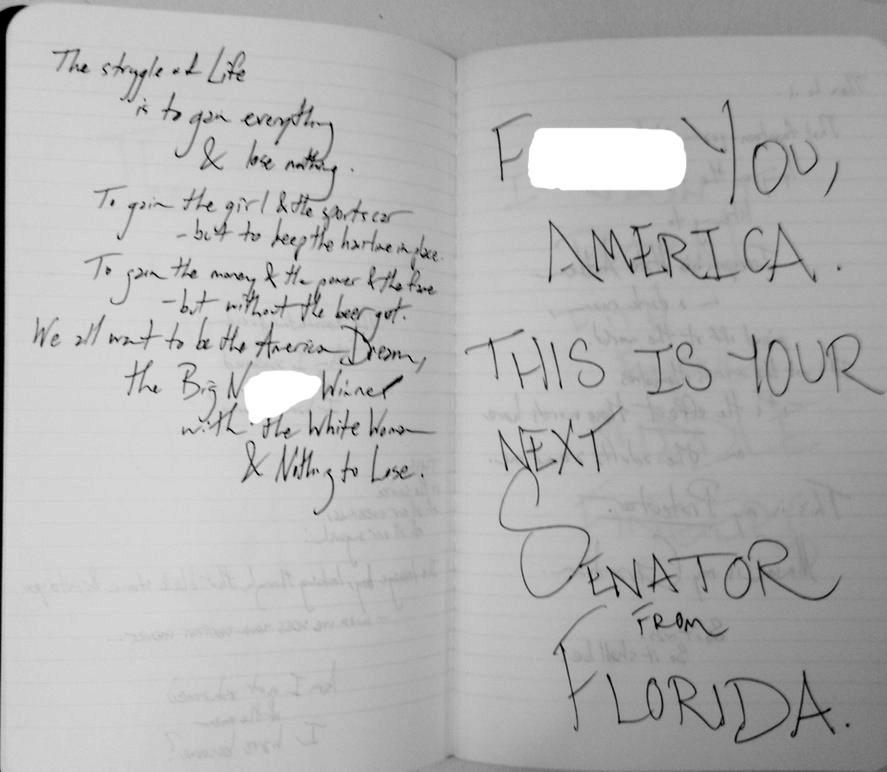 The struggle of Life
is to gain everything
& lose nothing.
To gain the girl & the sports car
- but to keep the hairline in place.
To gain the money & the power & the fame
- but without the beer gut.
We all want to be the American Dream,
the Big N Winner
with the White Woman
& Nothing to Lose.
F YOU,
AMERICA.
THIS IS YOUR
NEXT
SENATOR
FROM
FLORIDA.